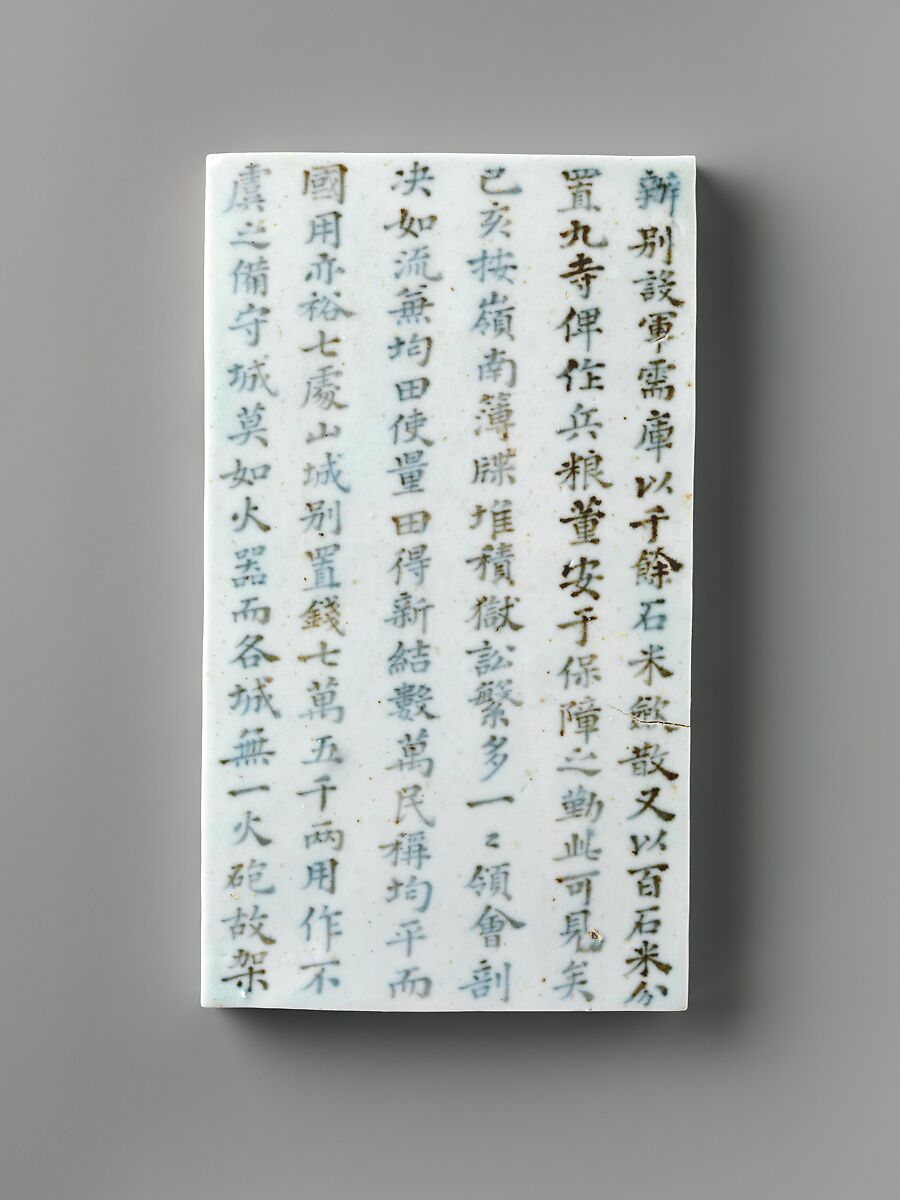 辦別設軍需庫以千餘石米斂散又以百石米分
置九寺俾作兵粮董安于保障之勤此可見矣
己亥按嶺南簿牒堆積獄訟繁多一〻領會剖
决如流無均田使量田得新結數萬民稱均平而
國用亦裕七處山城別置錢七萬五千两用作不
虞之備守城莫如火器而各城無一火砲故架